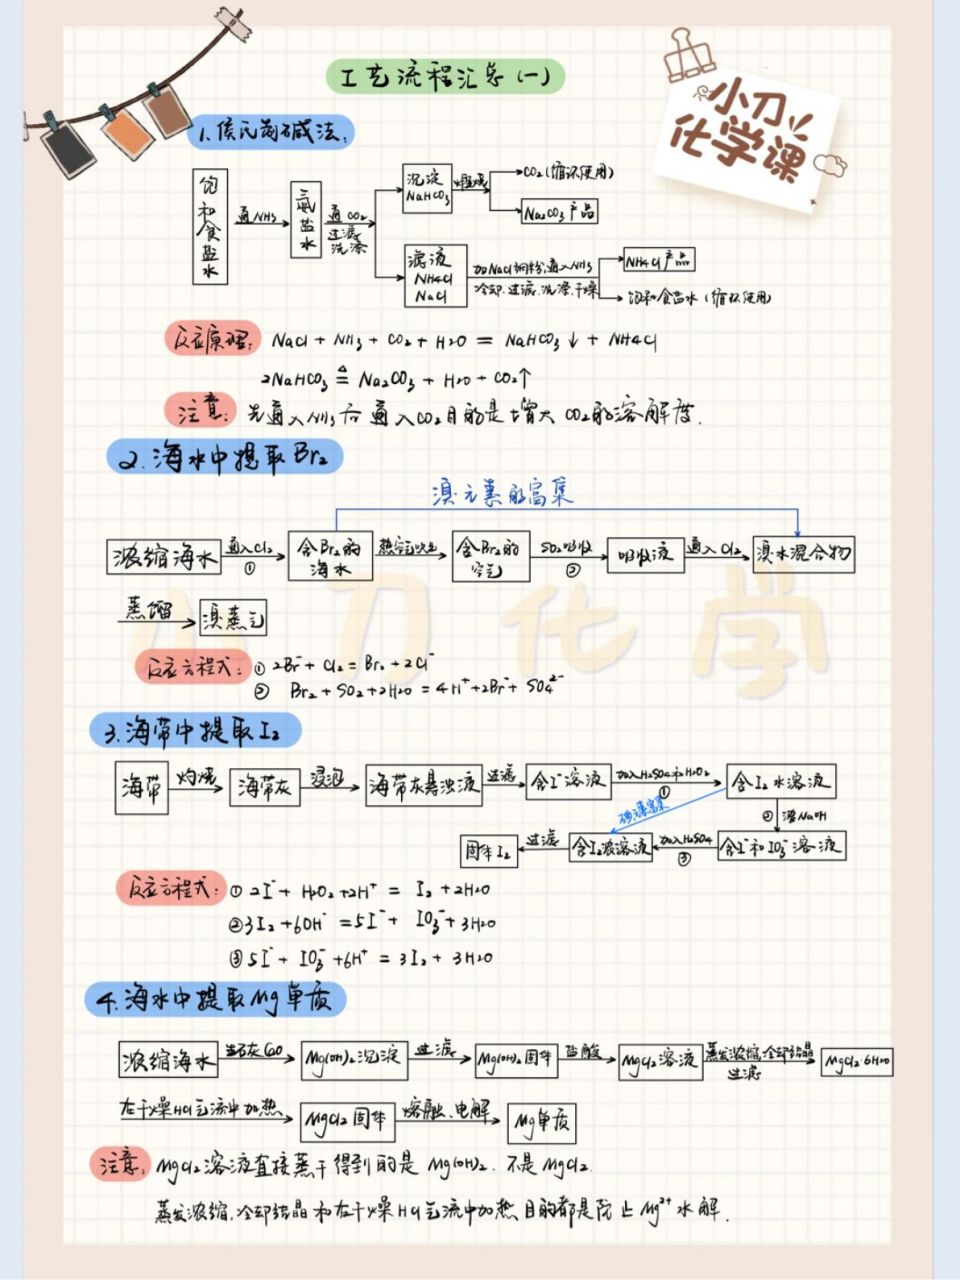 工艺流程汇总(一)
小刀
化学课
1.侯氏制碱法:
饱和食盐水
通NH3
氨盐水
通CO2
过滤
洗涤
沉淀
NaHCO3
煅烧
CO2(循环使用)
Na2CO3产品
滤液
NH4Cl
NaCl
加NaCl细粉,通入NH3
冷却.过滤.洗涤.干燥
NH4Cl产品
饱和食盐水(循环使用)
反应原理: NaCl + NH3 + CO2 + H2O = NaHCO3↓ + NH4Cl
2NaHCO3 ≜ Na2CO3 + H2O + CO2↑
注意: 先通入NH3后通入CO2目的是增大CO2的溶解度.
2.海水中提取Br2
溴元素的富集
浓缩海水
通入Cl2
①
含Br2的
海水
热空气吹出
含Br2的
空气
SO2吸收
②
吸收液
通入Cl2
溴水混合物
蒸馏
溴蒸气
反应方程式: ① 2Br⁻ + Cl2 = Br2 + 2Cl⁻
② Br2 + SO2 + 2H2O = 4H⁺ + 2Br⁻ + SO4²⁻
3.海带中提取I2
海带
灼烧
海带灰
浸泡
海带灰悬浊液
过滤
含I⁻溶液
加入H2SO4和H2O2
①
含I2水溶液
碘元素富集
② 浓NaOH
含I⁻和IO3⁻溶液
加入H2SO4
③
含I2浓溶液
过滤
固体I2
反应方程式: ① 2I⁻ + H2O2 + 2H⁺ = I2 + 2H2O
② 3I2 + 6OH⁻ = 5I⁻ + IO3⁻ + 3H2O
③ 5I⁻ + IO3⁻ + 6H⁺ = 3I2 + 3H2O
4.海水中提取Mg单质
浓缩海水
生石灰CaO
Mg(OH)2沉淀
过滤
Mg(OH)2固体
盐酸
MgCl2溶液
蒸发浓缩,冷却结晶
过滤
MgCl2·6H2O
在干燥HCl气流中加热
MgCl2固体
熔融、电解
Mg单质
注意: MgCl2溶液直接蒸干得到的是Mg(OH)2.不是MgCl2.
蒸发浓缩.冷却结晶和在干燥HCl气流中加热目的都是防止Mg²⁺水解.
小刀化学